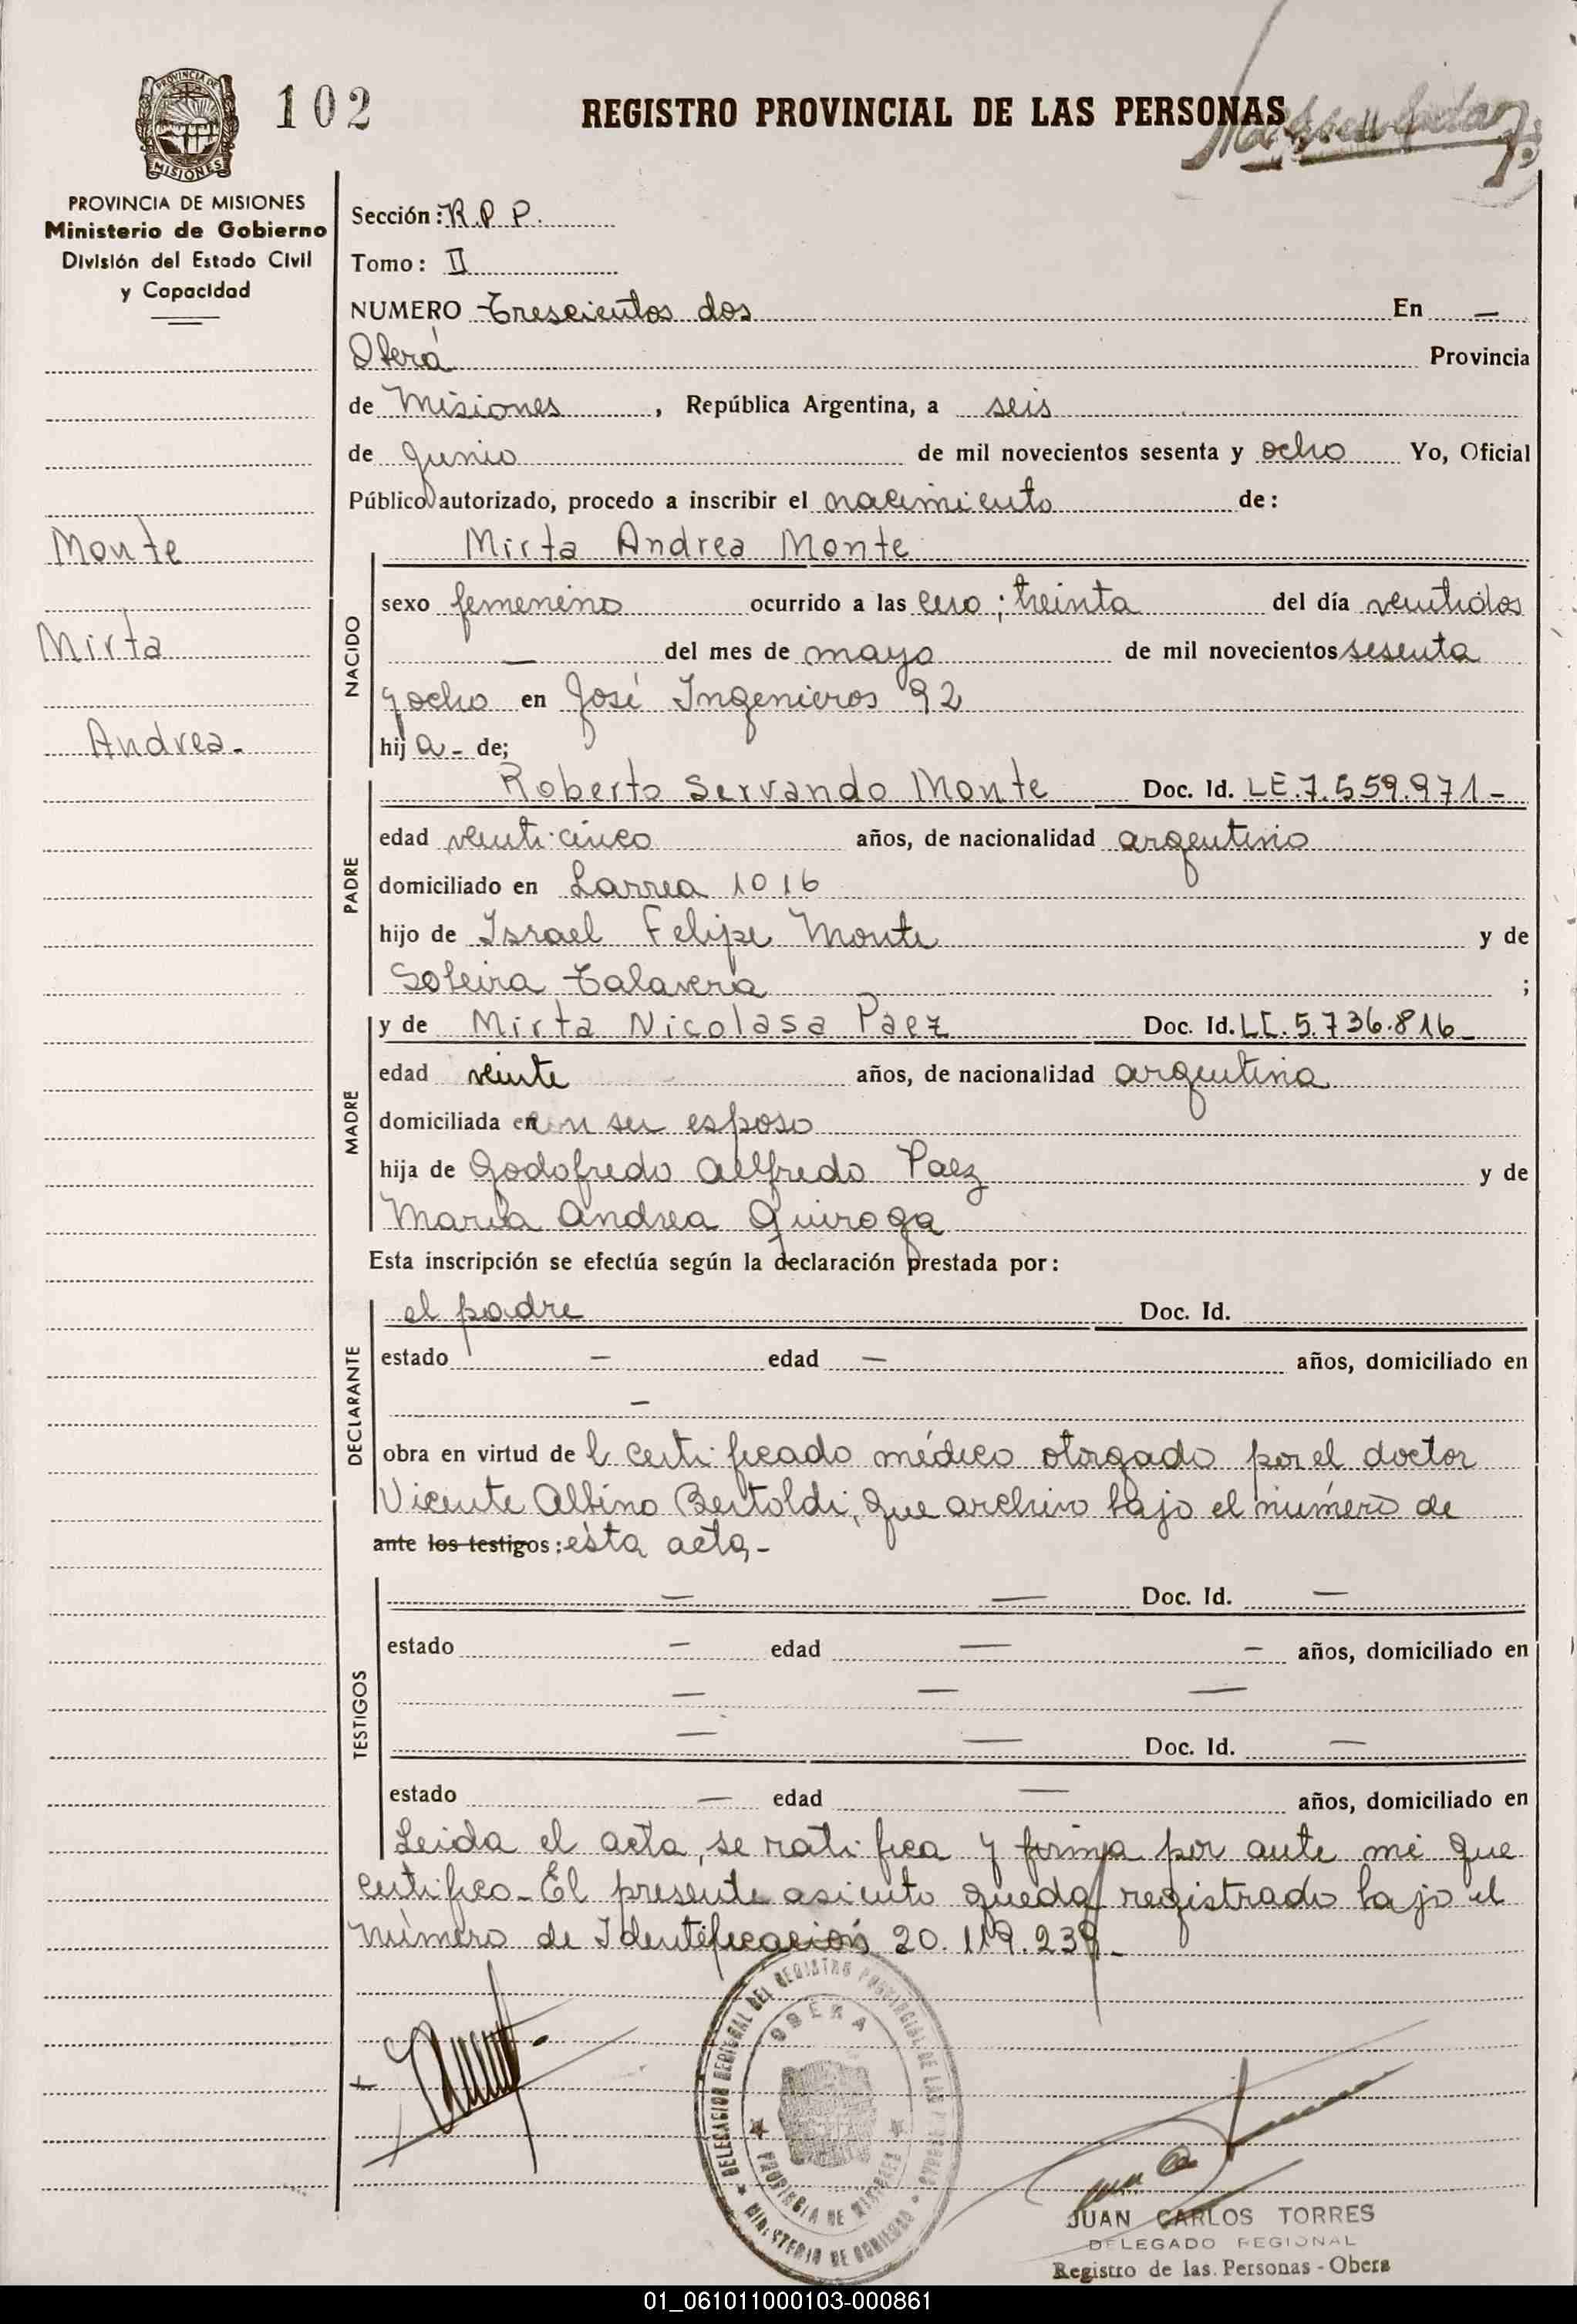 102
REGISTRO PROVINCIAL DE LAS PERSONAS
PROVINCIA DE
MISIONES
PROVINCIA DE MISIONES
Ministerio de Gobierno
División del Estado Civil
y Capacidad
Monte
Mirta
Andrea.
Sección: R.P.P.
Tomo: II
NUMERO Trescientos dos En —
Oberá Provincia
de Misiones, República Argentina, a seis
de Junio de mil novecientos sesenta y ocho Yo, Oficial
Público autorizado, procedo a inscribir el nacimiento de:
Mirta Andrea Monte
NACIDO
sexo femenino ocurrido a las cero; treinta del día veintidos
— del mes de mayo de mil novecientos sesenta
y ocho en José Ingenieros 92
hij a - de;
PADRE
Roberto Servando Monte Doc. Id. LE.7.559.971-
edad veinticinco años, de nacionalidad argentino
domiciliado en Larrea 1016
hijo de Israel Felipe Monte y de
Talavera ;
MADRE
y de Mirta Nicolasa Paez Doc. Id. LC.5.736.816-
edad veinte años, de nacionalidad argentina
domiciliada en con su esposo
hija de Godofredo Allfredo Paez y de
María Andrea Quiroga
Esta inscripción se efectúa según la declaración prestada por:
DECLARANTE
el padre Doc. Id.
estado — edad — años, domiciliado en
—
obra en virtud de l certificado médico otorgado por el doctor
Vicente Albino Bertoldi, que archivo bajo el número de
ante los testigos: ésta acta-
TESTIGOS
— — Doc. Id. —
estado — edad — — años, domiciliado en
— — —
— — Doc. Id. —
estado — edad — años, domiciliado en
Leida el acta, se ratifica y firma por ante mi que
certifico- El presente asiento queda registrado bajo el
número de Identificación 20.119.239-
DELEGACION REGIONAL DEL REGISTRO PROVINCIAL DE LAS PERSONAS
OBERA
PROVINCIA DE MISIONES
MINISTERIO DE GOBIERNO
JUAN CARLOS TORRES
DELEGADO REGIONAL
Registro de las Personas - Obera
01_061011000103-000861